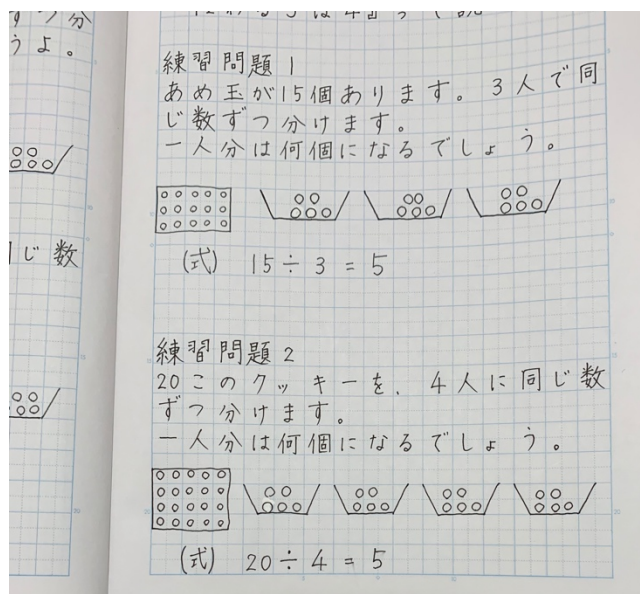 つ分
うよ。
じ数
練習問題1
あめ玉が15個あります。3人で同
じ数ずつ分けます。
一人分は何個になるでしょう。
(式) 15÷3=5
練習問題2
20このクッキーを、4人に同じ数
ずつ分けます。
一人分は何個になるでしょう。
(式) 20÷4=5